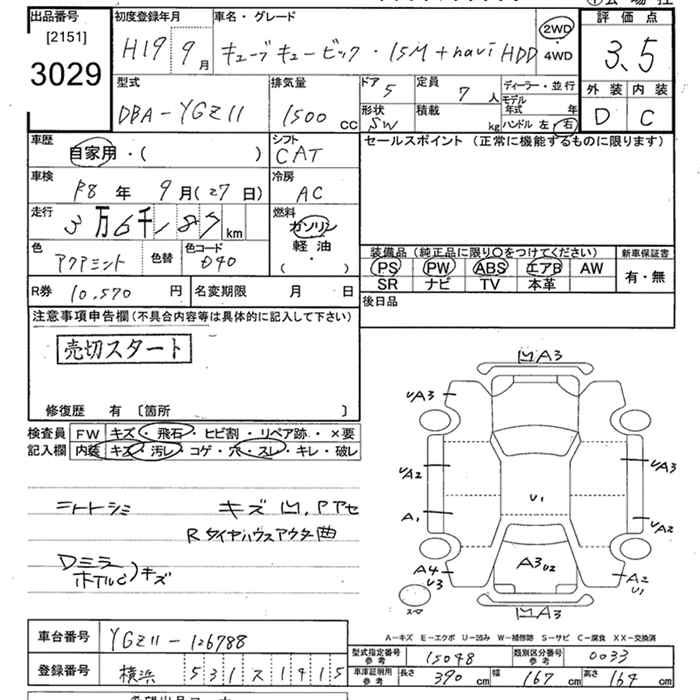 出品番号 初度登録年月 車名・グレード 2WD 評価点
[2151] H19 9月 キューブキュービック・15M+navi HDD ・4WD 3.5
3029
型式 排気量 ドア 5 定員 7人 ディーラー・並行 外装 内装
DBA-YGZ11 1500cc 形状 SW 積載 kg モデル年式 年 D C
ハンドル 左 右
車歴 自家用・( ) シフト CAT セールスポイント (正常に機能するものに限ります)
車検 R8年 9月(27日) 冷房 AC
走行 3万6千187km 燃料 ガソリン 軽油 ( ・ )
色 アクアミント 色替 色コード D40 装備品(純正品に限り○をつけてください) 新車保証書
PS PW ABS エアB AW 有・無
SR ナビ TV 本革
R券 10,570円 名変期限 月 日 後日品
注意事項申告欄(不具合内容等は具体的に記入して下さい)
売切スタート
修復歴 有 〔箇所 〕
検査員 FW キズ・飛石・ヒビ割・リペア跡・×要
記入欄 内装 キズ・汚レ・コゲ・穴・スレ・キレ・破レ
凹A3
UA3
UA2 UA3
U1
A1 UA2
A3 U2
A4 U3 A2 U1
スペア
凹A3
シートシミ キズ凹,Pアセ
Rタイヤハウスアウター曲
Dミラー
ホイルC)キズ
A-キズ E-エクボ U-凹み W-補修跡 S-サビ C-腐食 XX-交換済
車台番号 YGZ11-126788 型式指定番号 参考 15048 類別区分番号 参考 0033
登録番号 横浜 531ス1415 車庫証明用 参考 長さ 390cm 幅 167cm 高さ 164cm